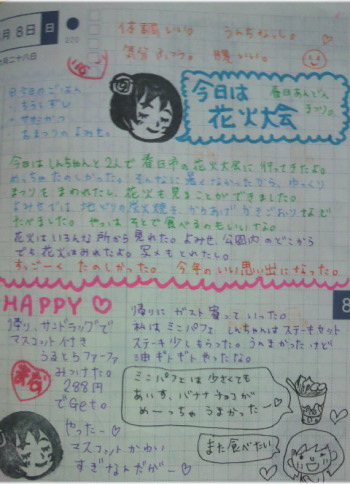 月8日 日
220
月二十八日
体調 いい。
気分 ふつう。 腰 いい。
今日のごはん
ちらしずし
おまつりのよみせ。
今日は 春日あんどん
まつりの
花火大会
今日はしんちゃんと2人で春日市の花火大会に行ってきたよ。
めっちゃたのしかった。そんなに暑くなかったから、ゆっくり
まつりをまわれたし、花火も見ることができました。
よみせでは、地どりの炭火焼き、からあげ、かきごおりなど
たべました。やっぱ、そとで食べるのもいいな。
花火はいろんな所から見れた。よみせ、公園内のどこから
でも花火はおがめたよ。写メもとれたし。
すっごーくたのしかった。 今年のいい思い出になった。
HAPPY♡
帰り、サンドラッグで
マスコット付き
うるとらファーファ
みつけた。
288円
でGet。
やったー♡
マスコットかわい
すぎなんだがー♡
帰りにガスト寄っていった。
私はミニパフェ しんちゃんはステーキセット
ステーキ少しもらった。うめかったけど
油ギトギトやったな。
ミニパフェは少さくても
あいす、バナナ チョコが
めーっちゃうまかったー♡
また食べたい
8